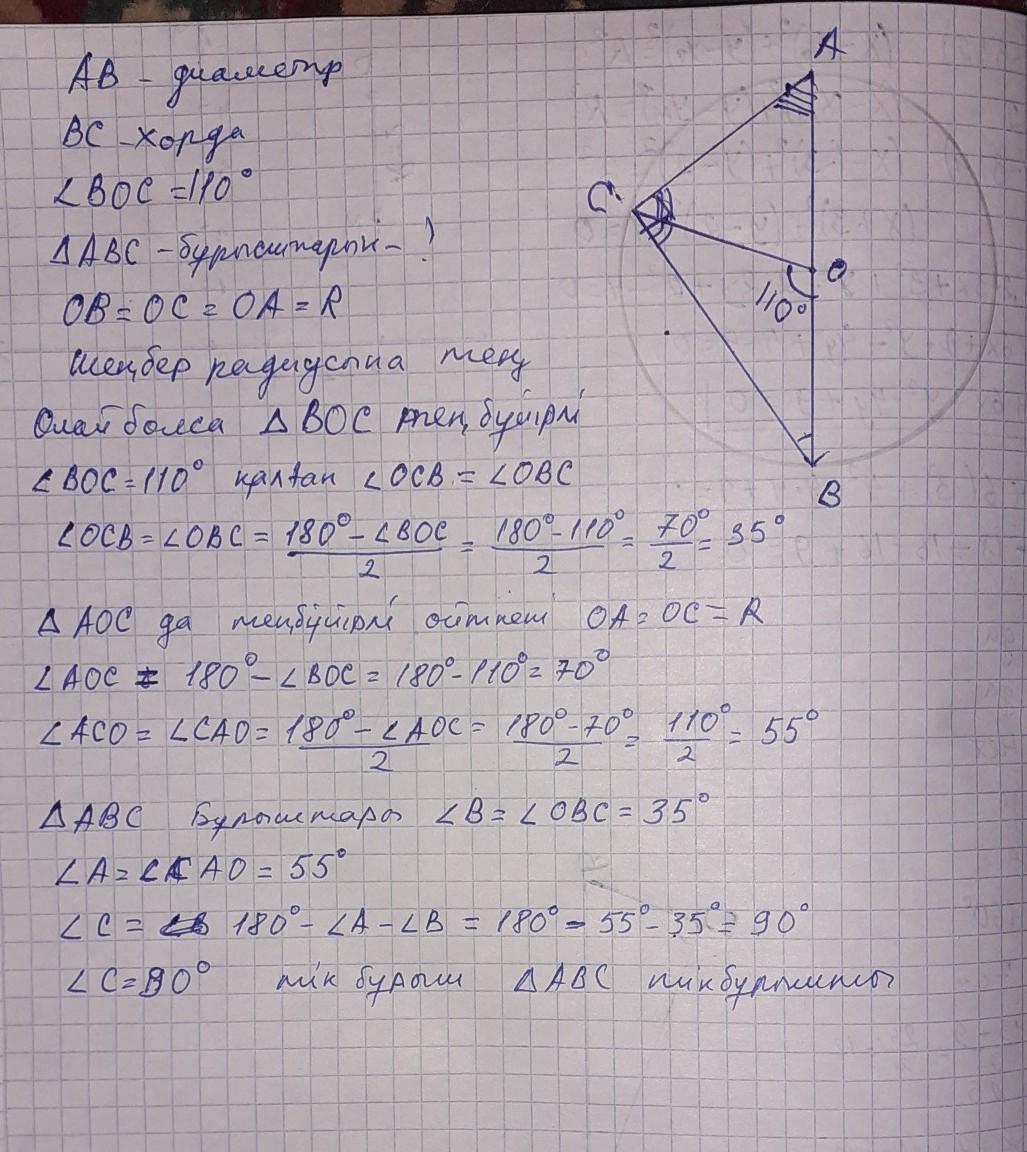 AB - диаметр
BC - хорда
∠BOC = 110°
ΔABC - бұрыштарын - ?
OB = OC = OA = R
Шеңбер радиусына тең
Олай болса Δ BOC тең бүйірлі
∠BOC = 110° қалған ∠OCB = ∠OBC
∠OCB = ∠OBC = (180° - ∠BOC)/2 = (180° - 110°)/2 = 70°/2 = 35°
Δ AOC да теңбүйірлі өйткені OA = OC = R
∠AOC = 180° - ∠BOC = 180° - 110° = 70°
∠ACO = ∠CAO = (180° - ∠AOC)/2 = (180° - 70°)/2 = 110°/2 = 55°
ΔABC Бұрыштары ∠B = ∠OBC = 35°
∠A = ∠CAO = 55°
∠C = 180° - ∠A - ∠B = 180° - 55° - 35° = 90°
∠C = 90° тік бұрыш ΔABC тікбұрышты
A
C
O
110°
B